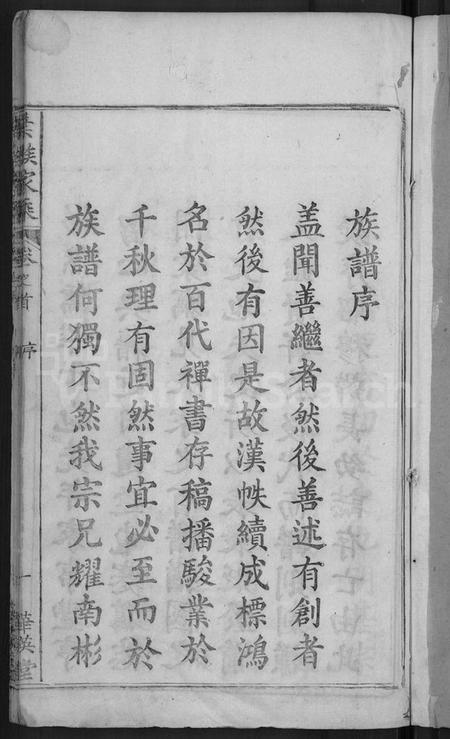 族譜序
盖聞善繼者然後善述有創者
然後有因是故漢帙續成標鴻
名於百代禪書存稿播駿業於
千秋理有固然事宜必至而於
族譜何獨不然我宗兄耀南彬
葉族家乘
卷之首
序
一
華英堂